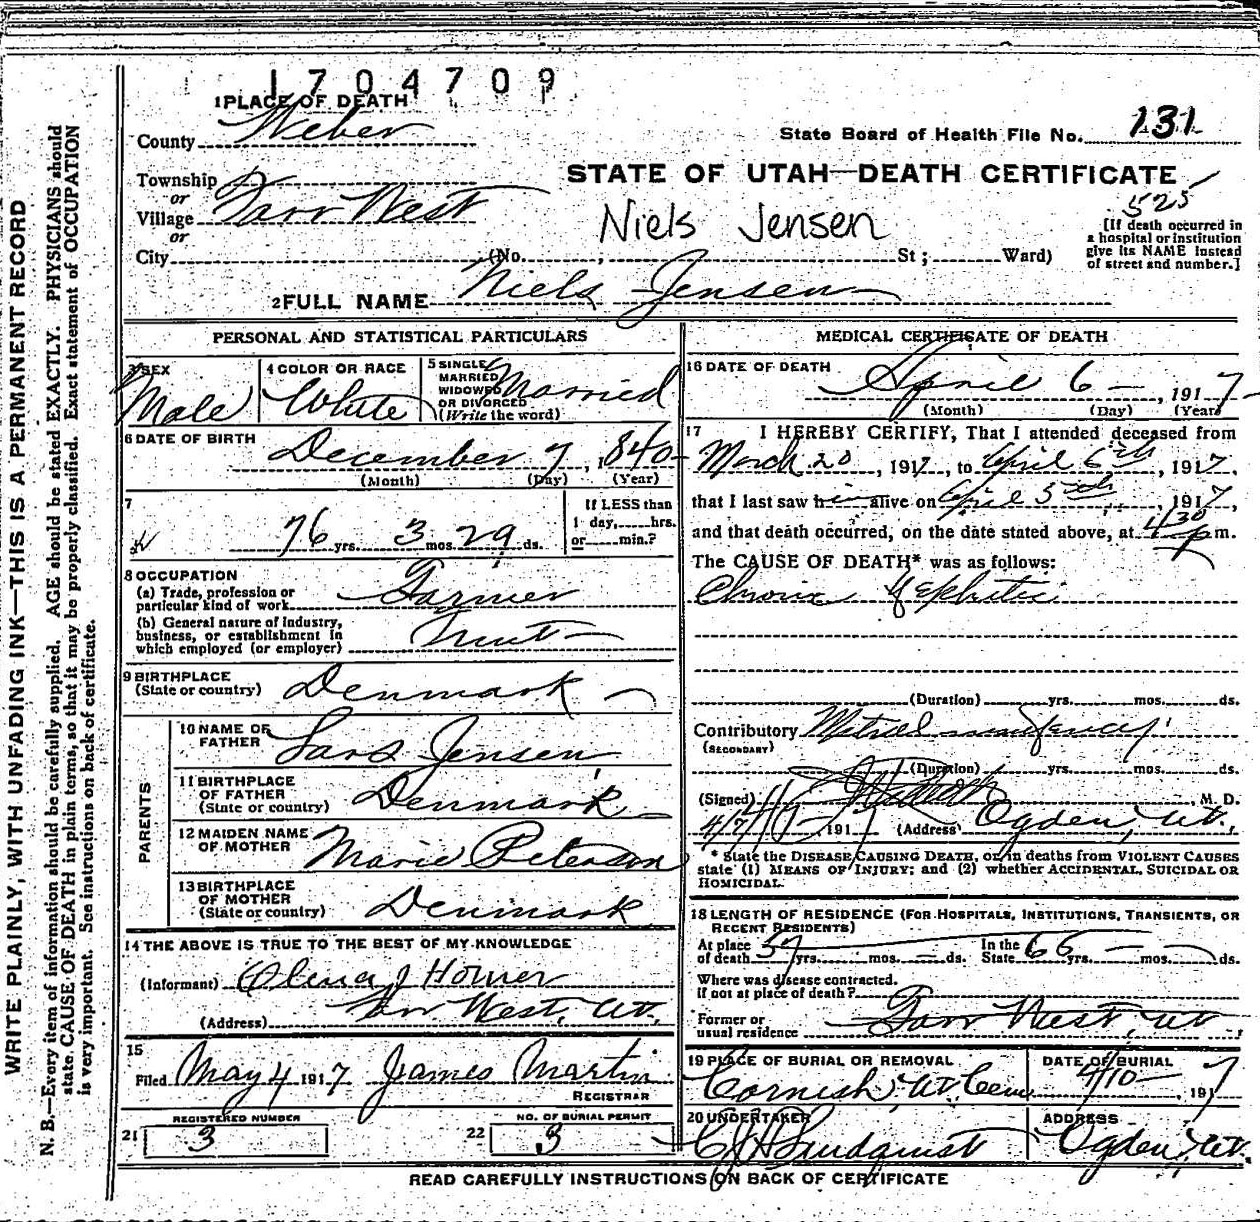 1704709
1 PLACE OF DEATH
County Weber
State Board of Health File No. 131
STATE OF UTAH—DEATH CERTIFICATE
525
Township
or
Village Farr West
or
City (No. ; St ; Ward)
Niels Jensen
[If death occurred in
a hospital or institution
give its NAME instead
of street and number.]
2 FULL NAME Niels Jensen
PERSONAL AND STATISTICAL PARTICULARS
3 SEX
Male
4 COLOR OR RACE
White
5 SINGLE
MARRIED
WIDOWED
OR DIVORCED
(Write the word)
Married
6 DATE OF BIRTH
December 7, 1840
(Month) (Day) (Year)
7
76 yrs. 3 mos. 29 ds.
If LESS than
1 day, hrs.
or min.?
8 OCCUPATION
(a) Trade, profession or
particular kind of work Farmer
(b) General nature of industry,
business, or establishment in
which employed (or employer) Fruit
9 BIRTHPLACE
(State or country) Denmark
PARENTS
10 NAME OF
FATHER Lars Jensen
11 BIRTHPLACE
OF FATHER
(State or country) Denmark
12 MAIDEN NAME
OF MOTHER Marie Peterson
13 BIRTHPLACE
OF MOTHER
(State or country) Denmark
14 THE ABOVE IS TRUE TO THE BEST OF MY KNOWLEDGE
(Informant) J Homer
(Address) Farr West, Ut.
15
Filed May 4, 1917 James Martin
REGISTRAR
REGISTERED NUMBER
21 3
NO. OF BURIAL PERMIT
22 3
MEDICAL CERTIFICATE OF DEATH
16 DATE OF DEATH
April 6, 1917
(Month) (Day) (Year)
17 I HEREBY CERTIFY, That I attended deceased from
March 20, 1917, to April 6th, 1917,
that I last saw him alive on April 5th, 1917,
and that death occurred, on the date stated above, at 4 30 p m.
The CAUSE OF DEATH* was as follows:
Chronic Nephritis
(Duration) yrs. mos. ds.
Contributory Mitral insufficiency
(SECONDARY)
(Duration) yrs. mos. ds.
(Signed) , M. D.
4/7/17 191 (Address) Ogden, Ut.
* State the DISEASE CAUSING DEATH, or, in deaths from VIOLENT CAUSES
state (1) MEANS OF INJURY; and (2) whether ACCIDENTAL, SUICIDAL OR
HOMICIDAL.
18 LENGTH OF RESIDENCE (FOR HOSPITALS, INSTITUTIONS, TRANSIENTS, OR
RECENT RESIDENTS)
At place
of death 57 yrs. mos. ds. In the
State 66 yrs. mos. ds.
Where was disease contracted.
If not at place of death?
Former or
usual residence Farr West, Ut
19 PLACE OF BURIAL OR REMOVAL
Cornish, Ut. Cem
DATE OF BURIAL
4/10, 1917
20 UNDERTAKER
Lindquist
ADDRESS
Ogden, Ut.
READ CAREFULLY INSTRUCTIONS ON BACK OF CERTIFICATE
WRITE PLAINLY, WITH UNFADING INK—THIS IS A PERMANENT RECORD
N. B.—Every item of information should be carefully supplied. AGE should be stated EXACTLY. PHYSICIANS should
state CAUSE OF DEATH in plain terms, so that it may be properly classified. Exact statement of OCCUPATION
is very important. See instructions on back of certificate.